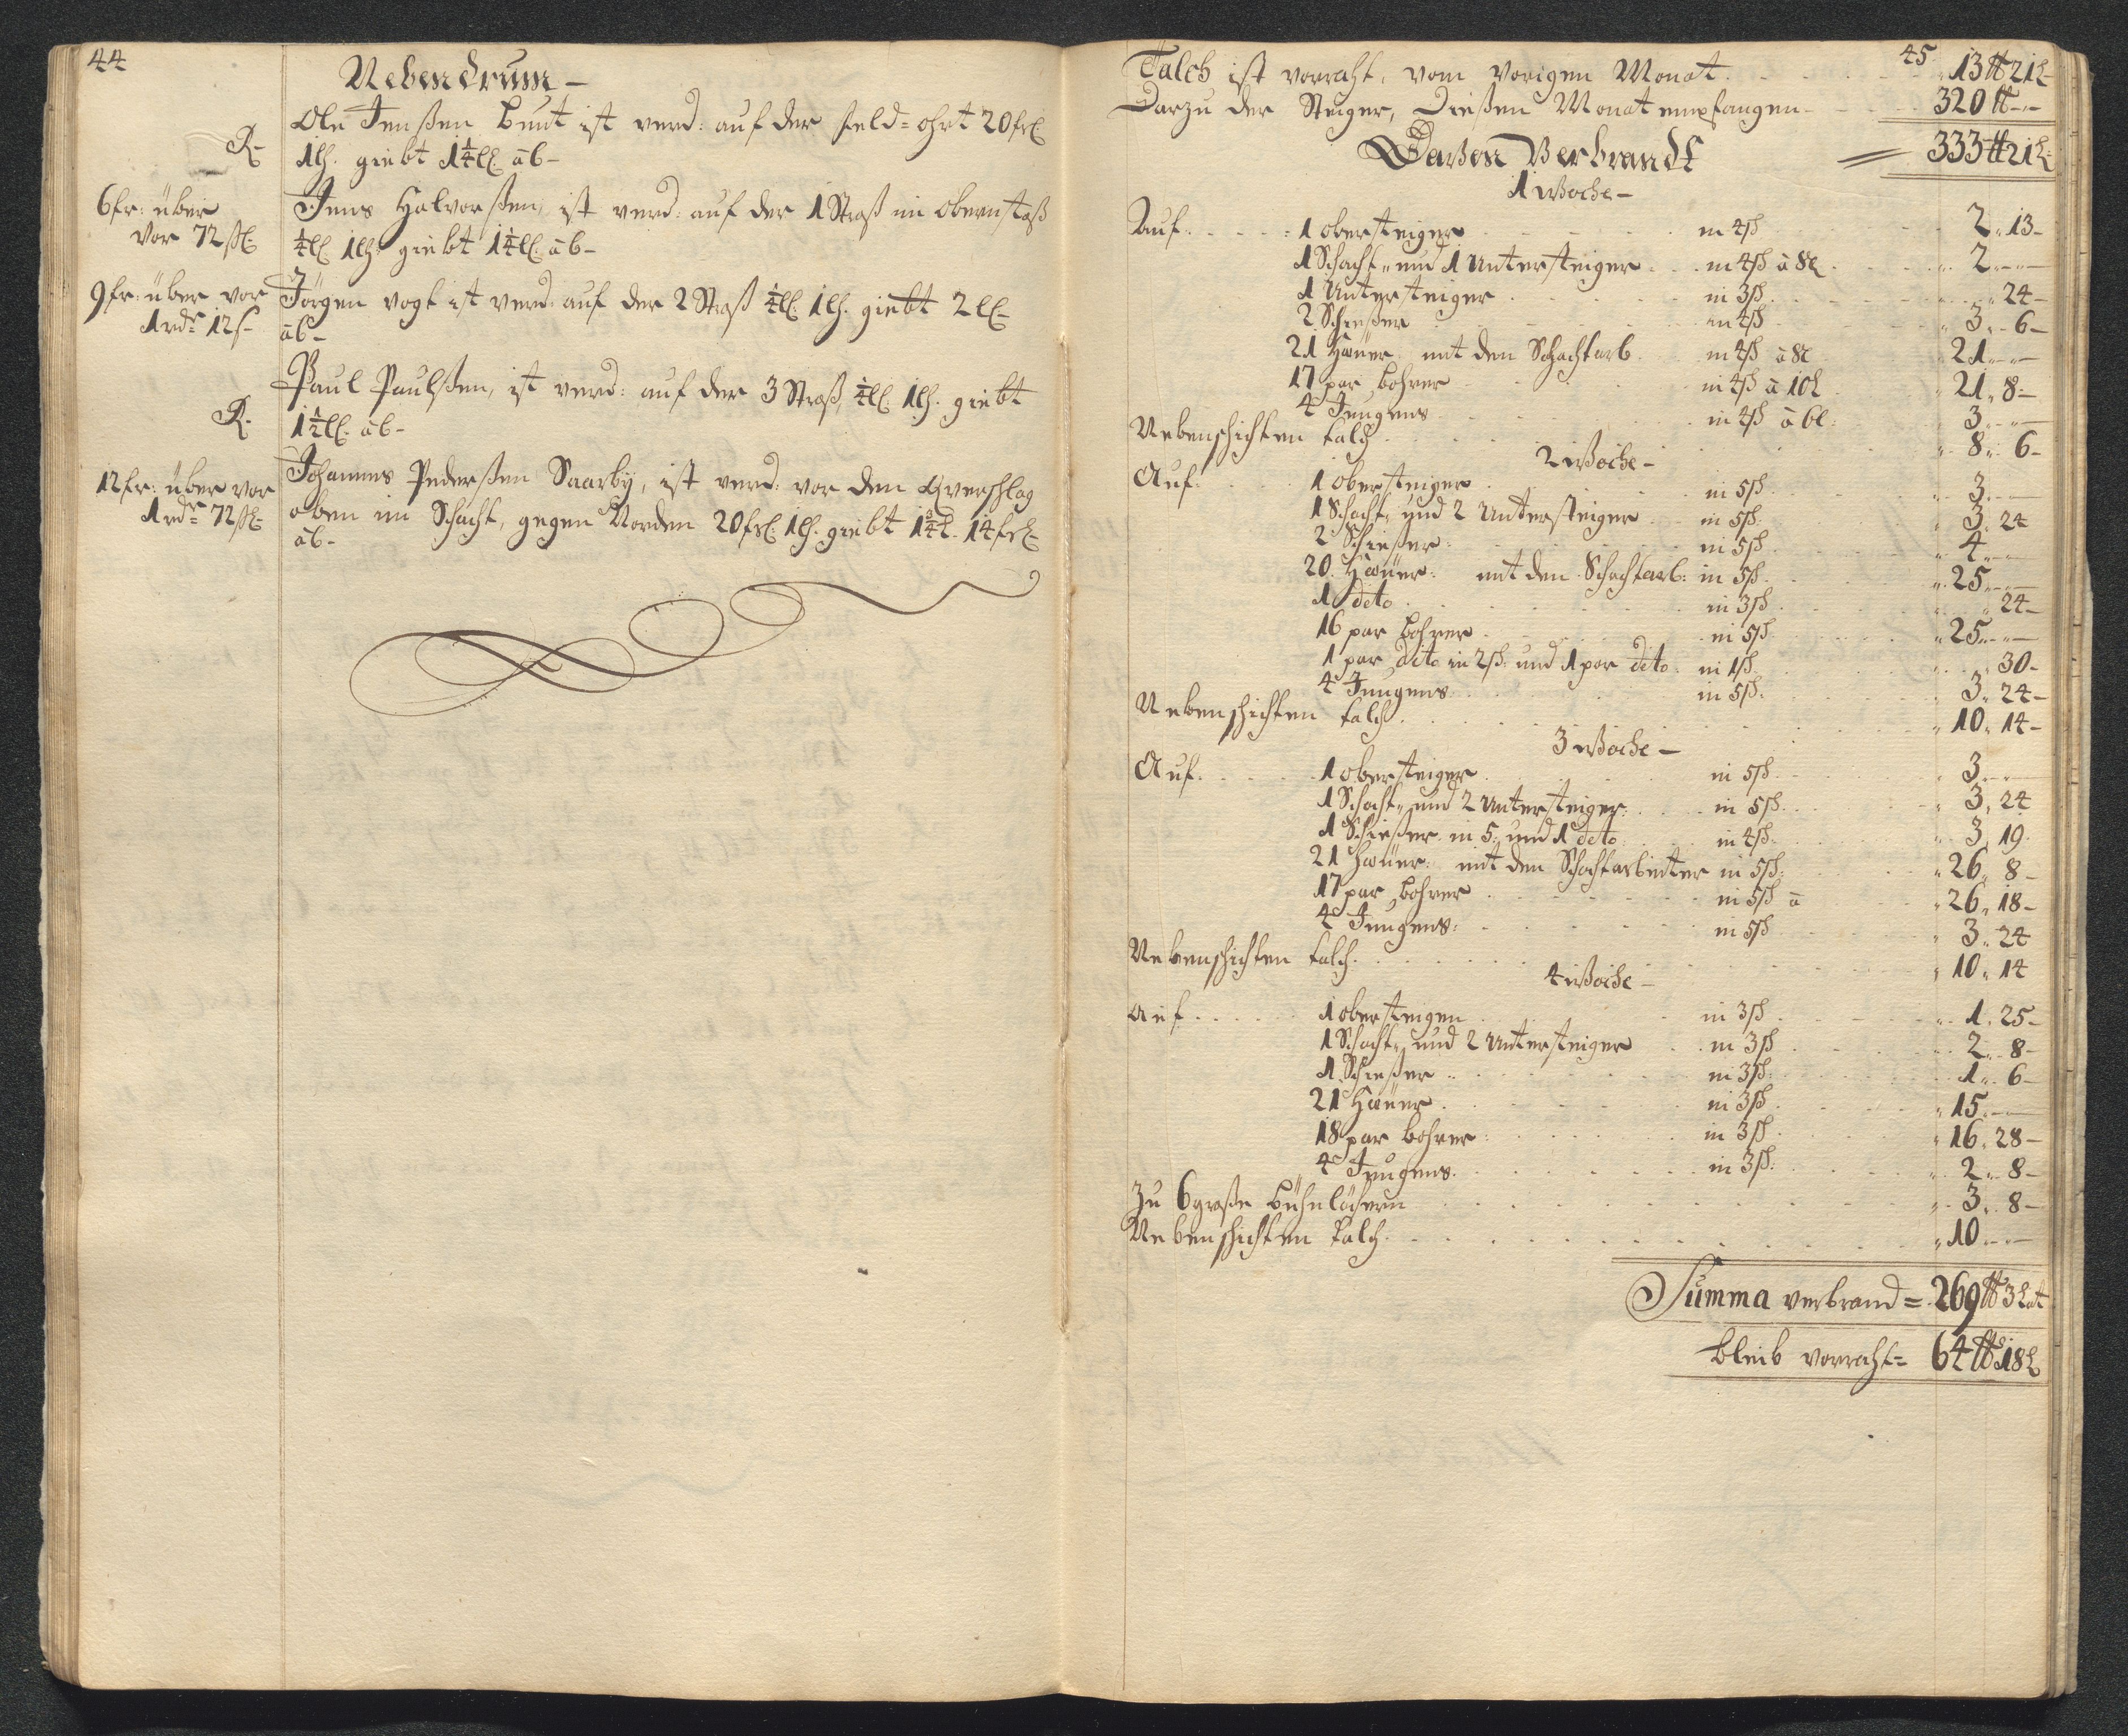 44
Nebendrum -
Ole Jenßen Bunt ist verd: auf der feld=ohrt 20 frl:
R- 1lh. giebt 1¼ ll: ab-
6 fr: über Jens Halvorßen, ist verd: auf der 1 Straß im obernstaß
vor 72 ßl: ¼ ll: 1lh. giebt 1¼ ll: ab-
9 fr: über vor Jörgen vogt ist verd: auf der 2 Straß ¼ ll: 1lh. giebt 2 ll-
1 rdr 12 ß- ab-
Paul Paulßen, ist verd: auf der 3 Straß, ¼ ll: 1lh. giebt
R. 1½ ll: ab-
12 fr: über vor Johannes Pederßen Saarby, ist verd: vor den Qverschlag
1 rdr 72 ßl- oben im Schacht, gegen Norden 20 frl: 1lh. giebt 1¾ l. 14 frl-
ab-
45
Talch ist vorraht, vom vorigen Monat . . . 13 ℔ 21 L
Darzu der Steiger, dießen Monat empfangen - 320 ℔ "-
Davon Verbrandt = 333 ℔ 21 L
1 Woche -
Auf . . . . 1 obersteiger . . . in 4 ß . . . 2 " 13 -
1 Schacht " und 1 Untersteiger . . in 4 ß à 8 L . . . 2 " - "
1 Untersteiger . . . in 3 ß . . . " 24 -
2 Schießer . . . in 4 ß . . . 3 " 6 -
21 Häuer mit den Schachtarb . in 4 ß à 8 L . . 21 " - "
17 par Bohrer . . . in 4 ß à 10 L . . 21 " 8 -
4 Jungens . . . in 4 ß à 6 L: . . 3 " - "
Nebenschichten talch . . . 8 " 6 -
2 Woche -
Auf . . . . 1 obersteiger . . . in 5 ß . . . 3 " - "
1 Schacht " und 2 Untersteiger . . in 5 ß: . . 3 " 24
2 Schießer . . . in 5 ß . . . 4 " - "
20 Häuer: mit den Schachtarb: in 5 ß . . . 25 " - "
1 dito . . . in 3 ß . . . " 24 -
16 par Bohrer . . . in 5 ß . . . 25 " - "
1 par dito in 2 ß: und 1 par dito . in 1 ß . . . " 30 -
4 Jungens . . . in 5 ß: . . . 3 " 24 -
Nebenschichten talch . . . 10 " 14 -
3 Woche -
Auf . . . . 1 obersteiger . . . in 5 ß . . . 3 " - "
1 Schacht " und 2 Untersteiger: . . in 5 ß . . . 3 " 24
1 Schießer in 5: und 1 dito . . in 4 ß . . . 3 " 19
21 Häuer: mit den Schachtarbeiter in 5 ß: . . 26 " 8 -
17 par Bohrer . . . in 5 ß à . . . 26 " 18 -
4 Jungens: . . . in 5 ß . . . 3 " 24
Nebenschichten talch . . . 10 " 14
4 Woche -
Auf . . . . 1 obersteigen . . . in 3 ß . . . 1 " 25 -
1 Schacht " und 2 Untersteiger . . in 3 ß . . . 2 " 8 -
1 Schießer . . . in 3 ß: . . . 1 " 6 -
21 Häuer . . . in 3 ß . . . 15 " - "
18 par Bohrer: . . . in 3 ß . . . 16 " 28 -
4 Jungens . . . in 3 ß: . . . 2 " 8 -
Zu 6 große bühnlöchern . . . 3 " 8 -
Nebenschichten talch . . . 10 " - "
Summa verbrand = 269 ℔ 3 Lat
bleib vorraht = 64 ℔ 18 L